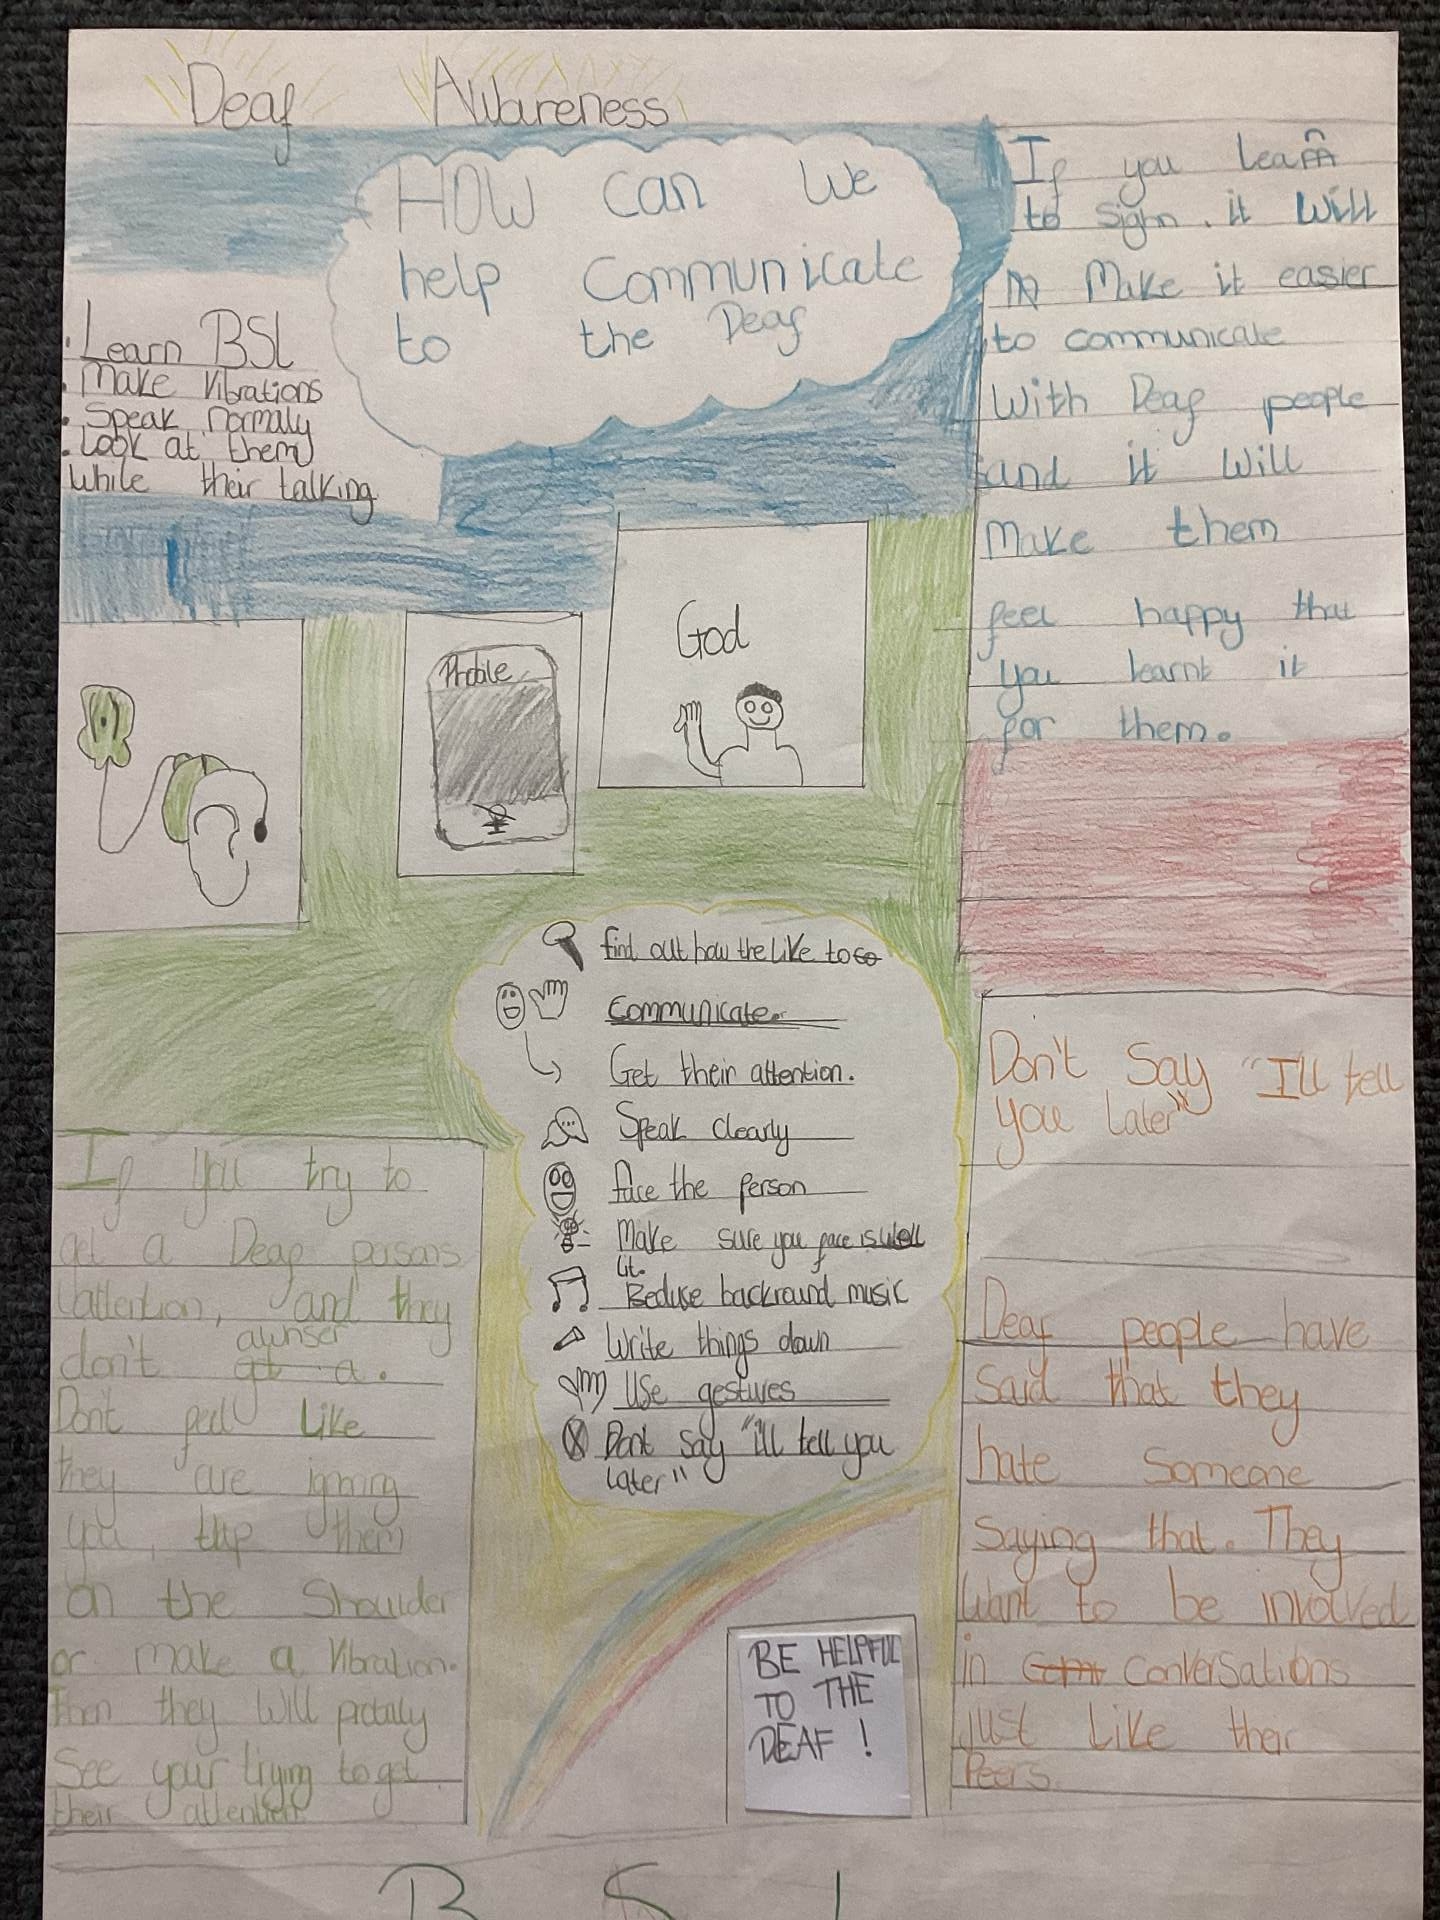 Deaf Awareness
HOW can we
help communicate
to the Deaf
. Learn BSL
. Make vibrations
. Speak normaly
. Look at them
while their talking
If you learn
to sign. it will
Make it easier
to communicate
With Deaf people
and it will
Make them
feel happy that
you learnt it
for them.
God
find out how the like to co
communicate.
Get their attention.
Speak clearly
face the person
Make sure you face is well
lit.
Reduse backround music
Write things down
Use gestures
Dont say "i'll tell you
later"
Don't Say "I'll tell
you later"
Deaf people have
said that they
hate someone
saying that. They
want to be involved
in conversations
just like their
Peers.
If you try to
get a Deaf persons
attention, and they
don't awnser
Dont feel like
they are ignoring
you, tap them
on the shoulder
or make a vibration.
Then they will probaly
See your trying to get
their attention
BE HELPFUL
TO THE
DEAF !
B S L